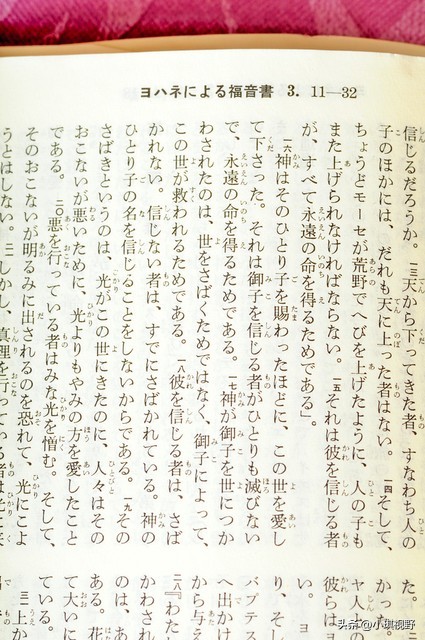 ヨハネによる福音書 3. 11―32
信じるだろうか。一三天から下ってきた者、すなわち人の
子のほかには、だれも天に上った者はない。一四そして、
ちょうどモーセが荒野でへびを上げたように、人の子も
また上げられなければならない。一五それは彼を信じる者
が、すべて永遠の命を得るためである」。
一六神はそのひとり子を賜わったほどに、この世を愛し
て下さった。それは御子を信じる者がひとりも滅びない
で、永遠の命を得るためである。一七神が御子を世につか
わされたのは、世をさばくためではなく、御子によって、
この世が救われるためである。一八彼を信じる者は、さば
かれない。信じない者は、すでにさばかれている。神の
ひとり子の名を信じることをしないからである。一九その
さばきというのは、光がこの世にきたのに、人々はその
おこないが悪いために、光よりもやみの方を愛したこと
である。二〇悪を行っている者はみな光を憎む。そして、
そのおこないが明るみに出されるのを恐れて、光にこよ
うとはしない。二一しかし、真理を行っている者は光に
た。
かっ
ヤ人の
彼らは
い。ヨ
り、そし
バプテス
へ出かけ
から与え
二八『わた
かわされ
のは、あ
ある。花
て大いに
ている。
上か
头条@小琪视野